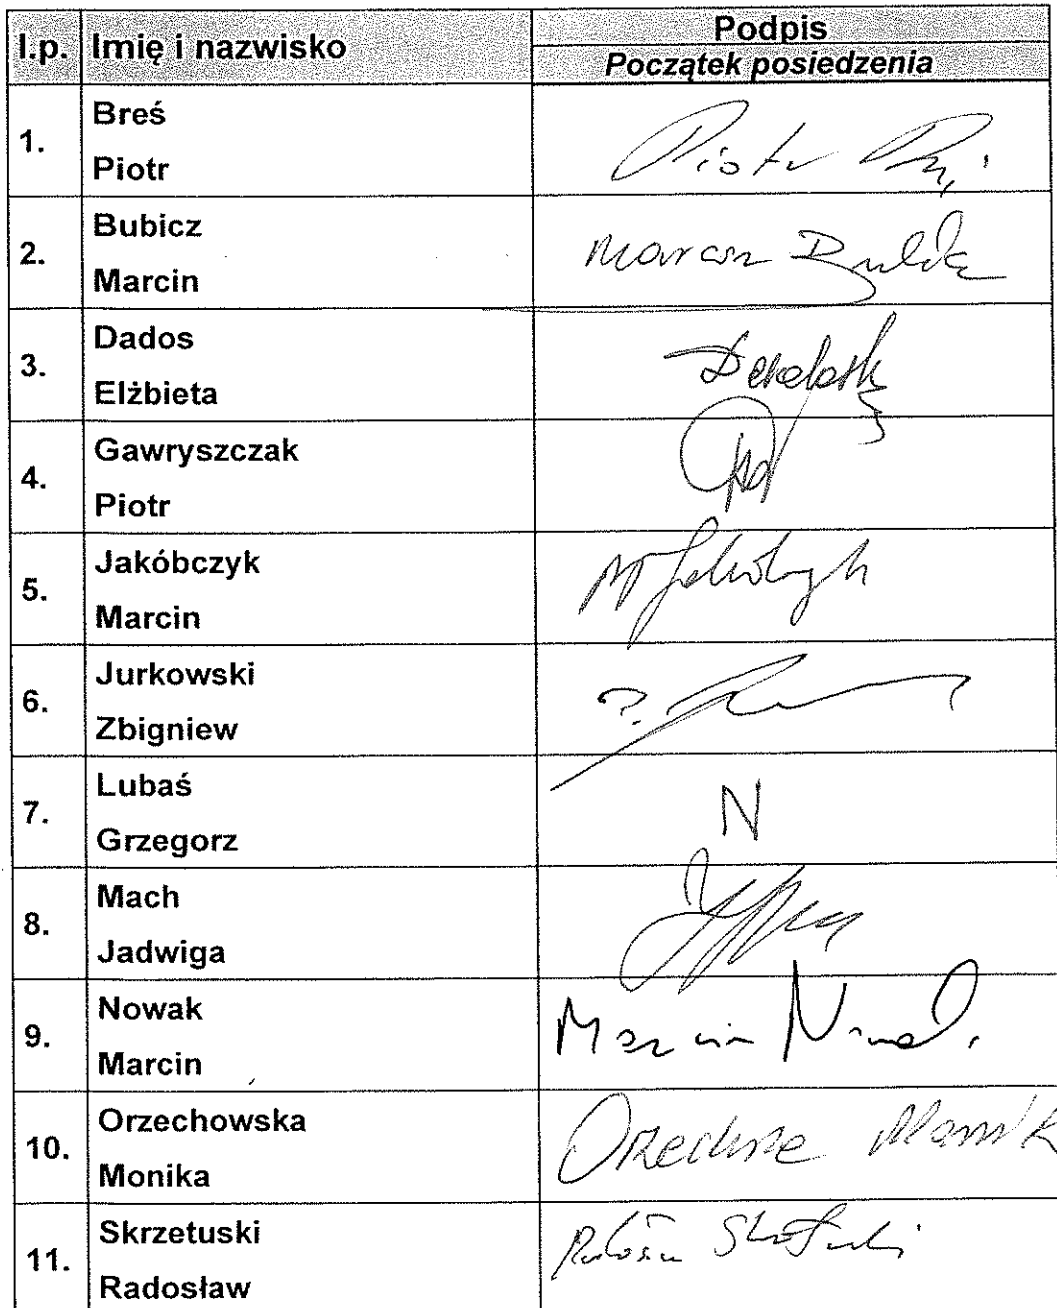 l.p. Imię i nazwisko Podpis
Początek posiedzenia
1. Breś
Piotr
Piotr
2. Bubicz
Marcin
Marcin
3. Dados
Elżbieta
4. Gawryszczak
Piotr
5. Jakóbczyk
Marcin
6. Jurkowski
Zbigniew
7. Lubaś
Grzegorz
N
8. Mach
Jadwiga
9. Nowak
Marcin
Marcin Nowak
10. Orzechowska
Monika
11. Skrzetuski
Radosław